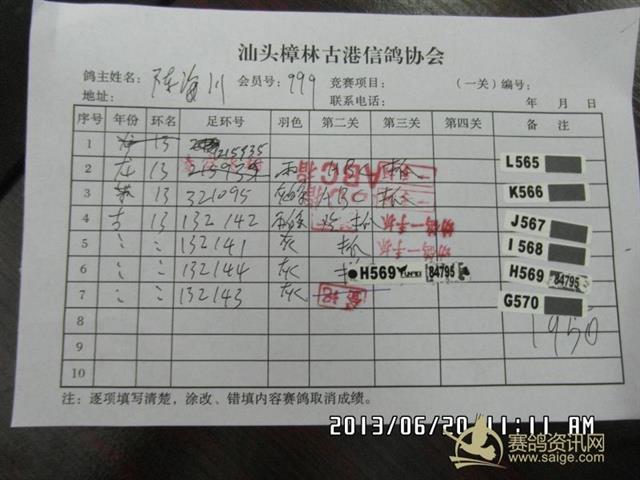 汕头樟林古港信鸽协会
鸽主姓名: 陈海川 会员号: 999 竞赛项目: (一关)编号:
地址: 联系电话: 年 月 日
序号 年份 环名 足环号 羽色 第二关 第三关 第四关 备 注
1 13 215935
2 13 L565
3 13 321095 K566
4 13 132142 抓 J567
5 〃 〃 132141 灰 抓 I568
6 〃 〃 132144 灰 H569 84795 H569 84795
7 〃 〃 132143 灰 G570
8 1950
9
10
注:逐项填写清楚,涂改、错填内容赛鸽取消成绩。
2013/06/20 11:11 AM
赛鸽资讯网
www.saige.com